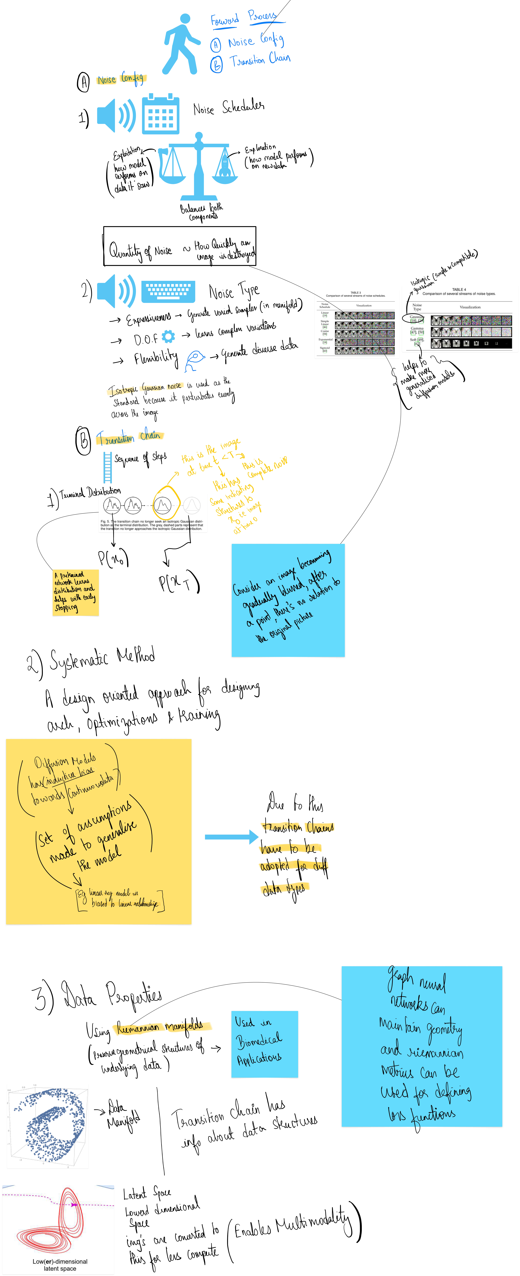 Forward Process
(A) Noise Config
(B) Transition Chain
(A) Noise Config
1) Noise Scheduler
Exploitation
(how model
performs on
data it saw)
Exploration
(how model performs
on new data)
Balances both
components
Quantity of Noise ~ How Quickly an
image is destroyed
2) Noise Type
→ Expressiveness → Generate varied complex (in manifold)
→ D.O.F → learns complex variations
→ Flexibility → Generate diverse data
Isotropic Gaussian noise is used as the
standard because it perturbates evenly
across the image
TABLE 3
Comparison of several streams of noise schedules.
Visualization
Isotropic (simple & compatible)
TABLE 4
Comparison of several streams of noise types.
Noise
Type
Visualization
helps to
make more
generalised
diffusion models
(B) Transition Chain
Sequence of Steps
this is the image
at time t < T
this is
complete noise
this has
some relating
structure to
x0 ie image
at time 0
1) Terminal Distribution
Fig. 5. The transition chain no longer seek an isotropic Gaussian distribution as the terminal distribution. The grey dashed parts represent that the transition no longer approaches the isotropic Gaussian distribution
P(x0)
P(xT)
A pretrained
network learns
distribution and
helps with early
stopping
Consider an image becoming
gradually blurred, after
a point there's no relation to
the original picture
2) Systematic Method
A design oriented approach for designing
arch, optimizations & training
Diffusion Models
has inductive bias
towards continuous data
(Set of assumptions
made to generalise
the model)
[Eg linear reg model is
biased to linear relationships]
Due to this
transition chains
have to be
adopted for diff
data types
3) Data Properties
Using Riemannian manifolds
(preserve geometrical structures of
underlying data)
→ Used in
Biomedical
Applications
graph neural
networks can
maintain geometry
and riemannian
metrics can be
used for defining
loss functions
→ Data
Manifold
Transition Chain has
info about data structures
Latent Space
Lowerd dimensional
Space
img's are converted to
this for less compute
(Enables Multimodality)
Low(er)-dimensional
latent space